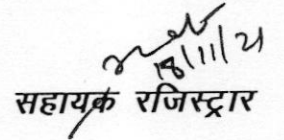 18/11/21
सहायक रजिस्ट्रार